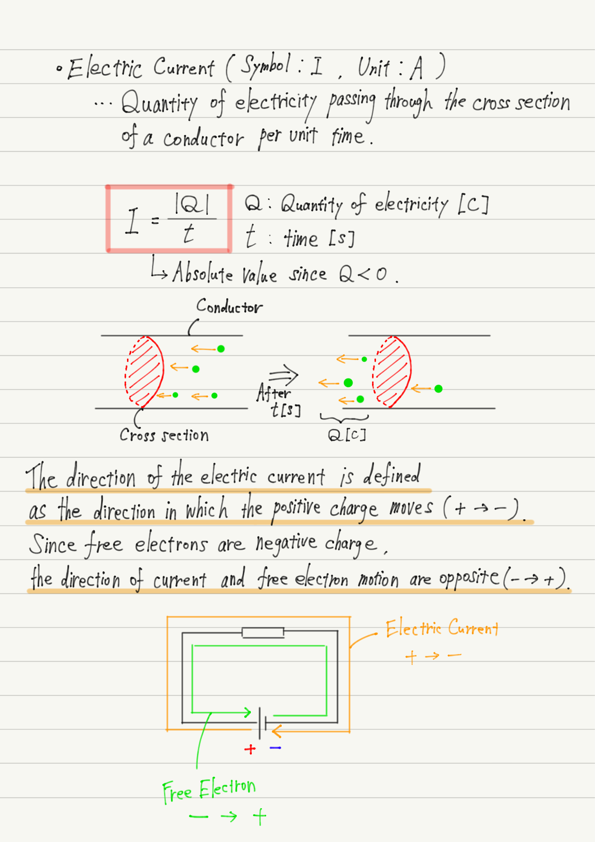 • Electric Current ( Symbol : I , Unit : A )
... Quantity of electricity passing through the cross section
of a conductor per unit time.
I = |Q| / t
Q : Quantity of electricity [C]
t : time [s]
↳ Absolute value since Q < 0.
Conductor
⇒
After
t[s]
Cross section
Q[C]
The direction of the electric current is defined
as the direction in which the positive charge moves ( + → - ).
Since free electrons are negative charge,
the direction of current and free electron motion are opposite ( - → + ).
Electric Current
+ → -
+ -
Free Electron
- → +